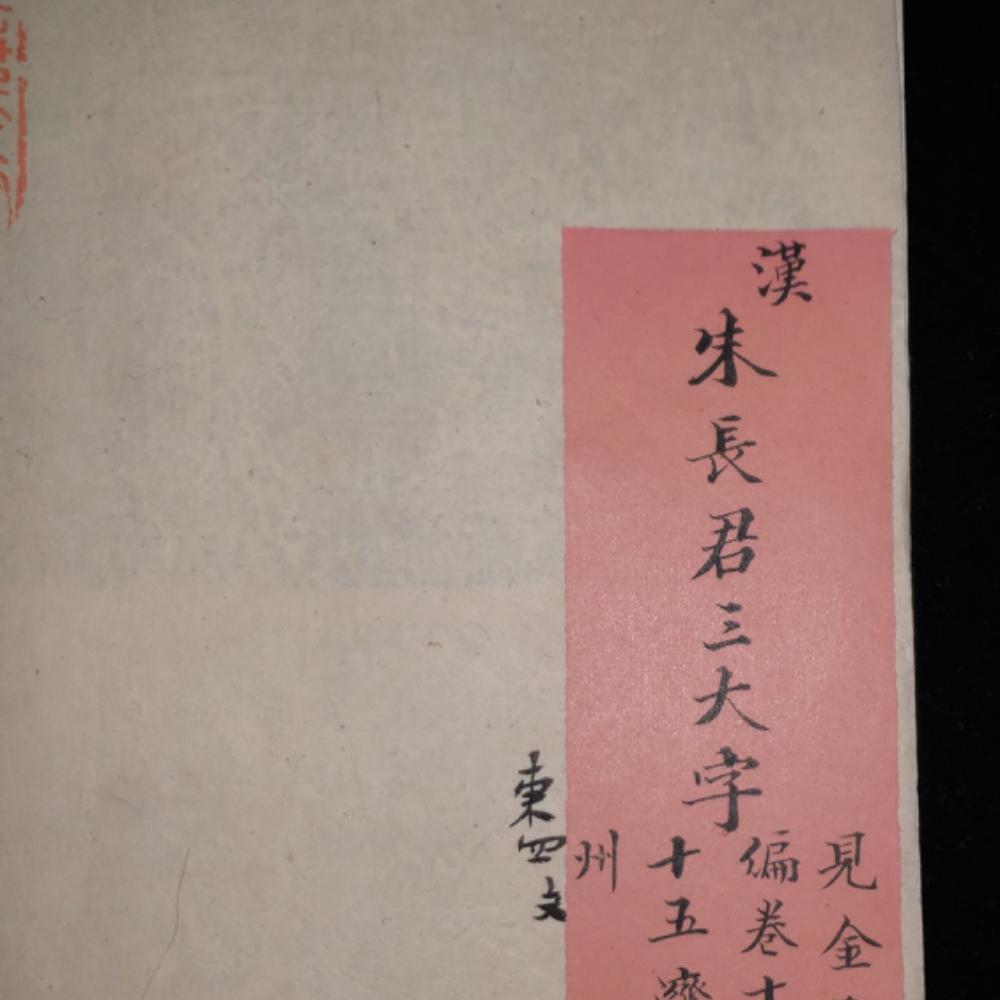 漢
朱長君三大字
見金
偏卷十
十五濟
州
東四文